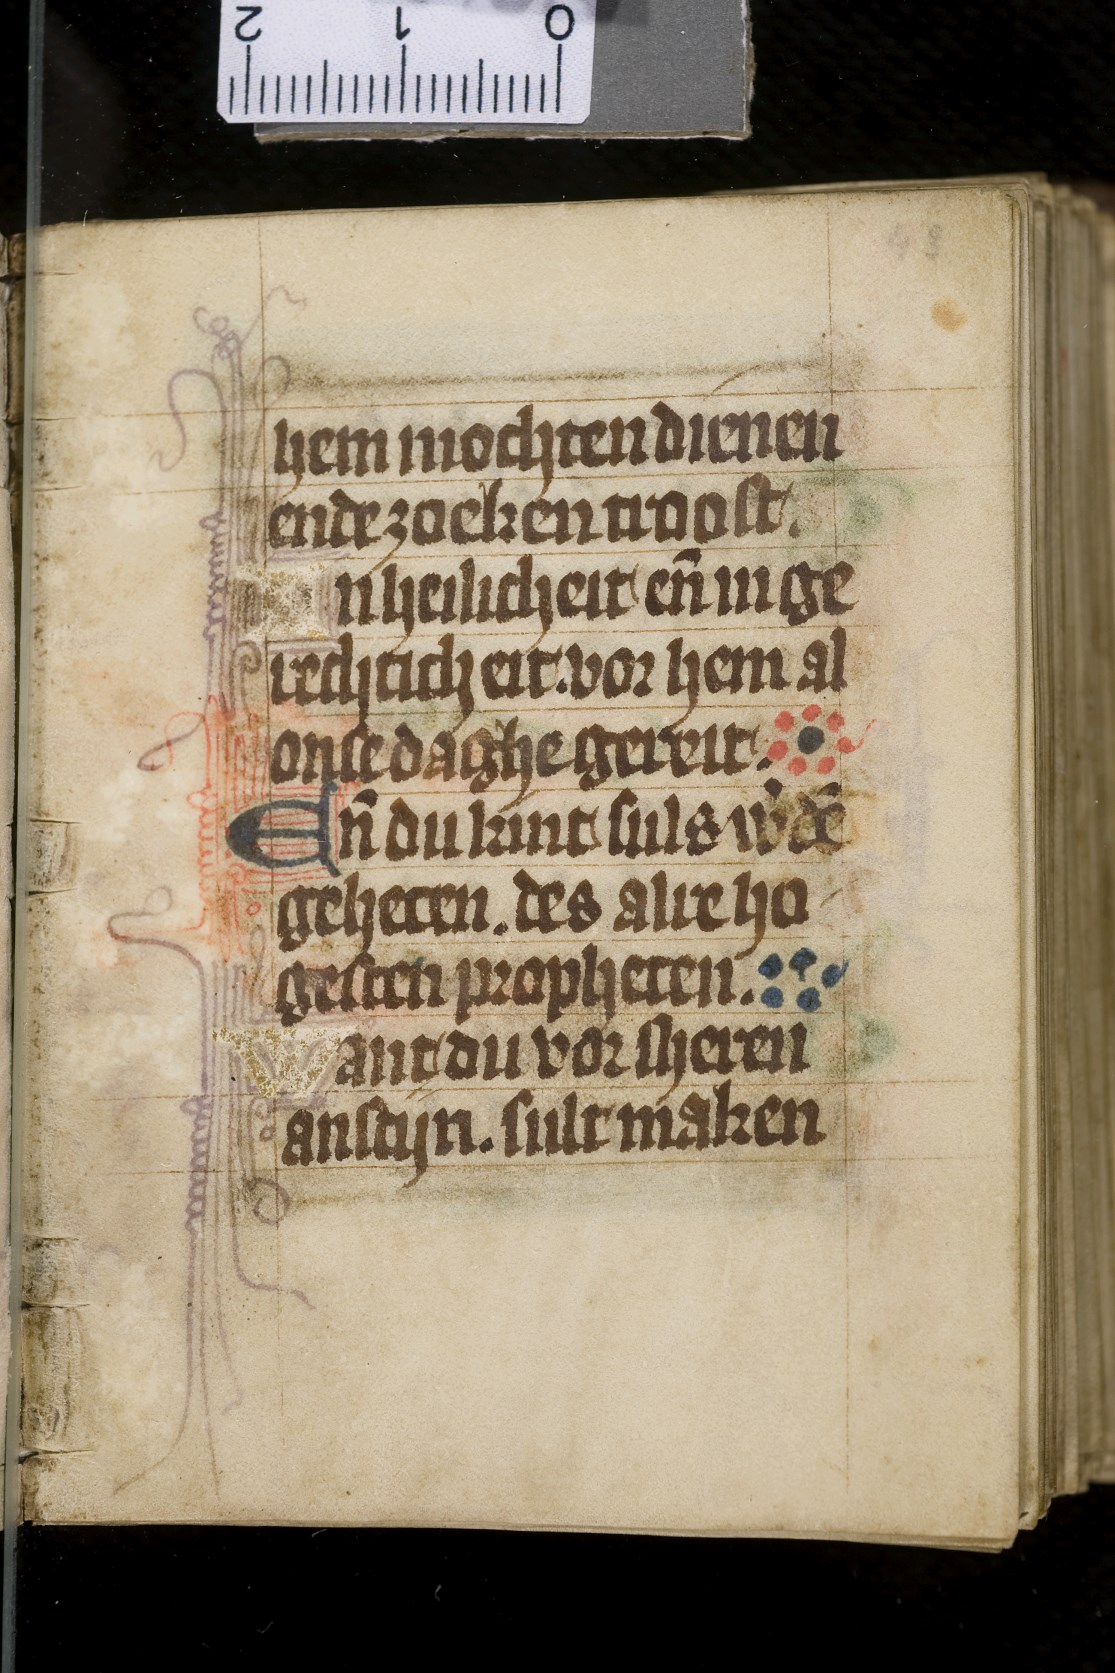 2 1 0
43
hem mochten dienen
ende zoeken troost.
In heilicheit en̄ in ge
rechticheit. vor hem al
onse daghe gereit.
En̄ du kint suls w̓dē
geheten. des alre ho
gesten propheten.
Want du vor sheren
anscijn. sult maken